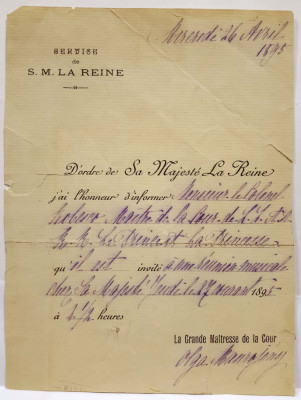 Mercredi 26 Avril
1895
SERVICE
de
S. M. LA REINE
D'ordre de Sa Majesté La Reine
j'ai l'honneur d'informer Monsieur le Colonel
Maître de la Cour de L.L. A.A.
R.R. Le Prince et La Princesse
qu'il est invité à une réunion musicale
chez Sa Majesté Jeudi le 27 courant 1895
à heures
La Grande Maîtresse de la Cour
Olga